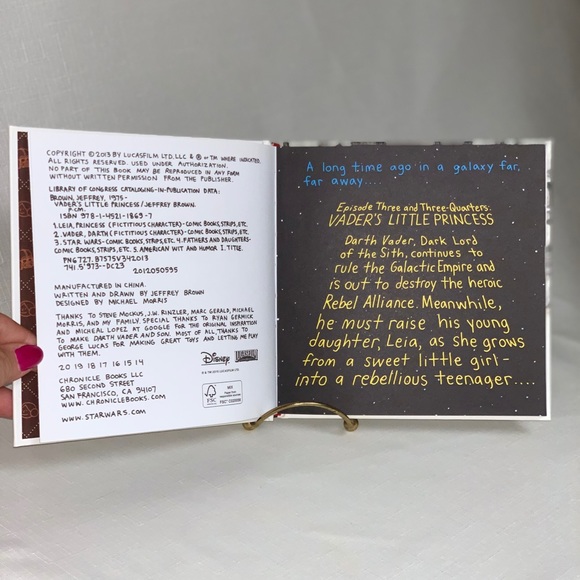 COPYRIGHT © 2013 BY LUCASFILM LTD. LLC & ® OR TM WHERE INDICATED.
ALL RIGHTS RESERVED. USED UNDER AUTHORIZATION.
NO PART OF THIS BOOK MAY BE REPRODUCED IN ANY FORM
WITHOUT WRITTEN PERMISSION FROM THE PUBLISHER.
LIBRARY OF CONGRESS CATALOGING-IN-PUBLICATION DATA:
BROWN, JEFFREY, 1975-
VADER'S LITTLE PRINCESS / JEFFREY BROWN.
P. CM.
ISBN 978-1-4521-1869-7
1. LEIA, PRINCESS (FICTITIOUS CHARACTER)-COMIC BOOKS, STRIPS, ETC.
2. VADER, DARTH (FICTITIOUS CHARACTER)-COMIC BOOKS, STRIPS, ETC.
3. STAR WARS-COMIC BOOKS, STRIPS, ETC. 4. FATHERS AND DAUGHTERS-
COMIC BOOKS, STRIPS, ETC. 5. AMERICAN WIT AND HUMOR I. TITLE.
PN6727.B7575V342013
741.5'973-DC23
2012050535
MANUFACTURED IN CHINA.
WRITTEN AND DRAWN BY JEFFREY BROWN
DESIGNED BY MICHAEL MORRIS
THANKS TO STEVE MOCKUS, J.W. RINZLER, MARC GERALD, MICHAEL
MORRIS, AND MY FAMILY. SPECIAL THANKS TO RYAN GERMICK
AND MICHEAL LOPEZ AT GOOGLE FOR THE ORIGINAL INSPIRATION
TO MAKE DARTH VADER AND SON. MOST OF ALL THANKS TO
GEORGE LUCAS FOR MAKING GREAT TOYS AND LETTING ME PLAY
WITH THEM.
20 19 18 17 16 15 14
CHRONICLE BOOKS LLC
680 SECOND STREET
SAN FRANCISCO, CA 94107
WWW.CHRONICLEBOOKS.COM
WWW.STARWARS.COM
Disney
FSC
MIX
A long time ago in a galaxy far,
far away....
Episode Three and Three-Quarters:
VADER'S LITTLE PRINCESS
Darth Vader, Dark Lord
of the Sith, continues to
rule the Galactic Empire and
is out to destroy the heroic
Rebel Alliance. Meanwhile,
he must raise his young
daughter, Leia, as she grows
from a sweet little girl-
into a rebellious teenager....